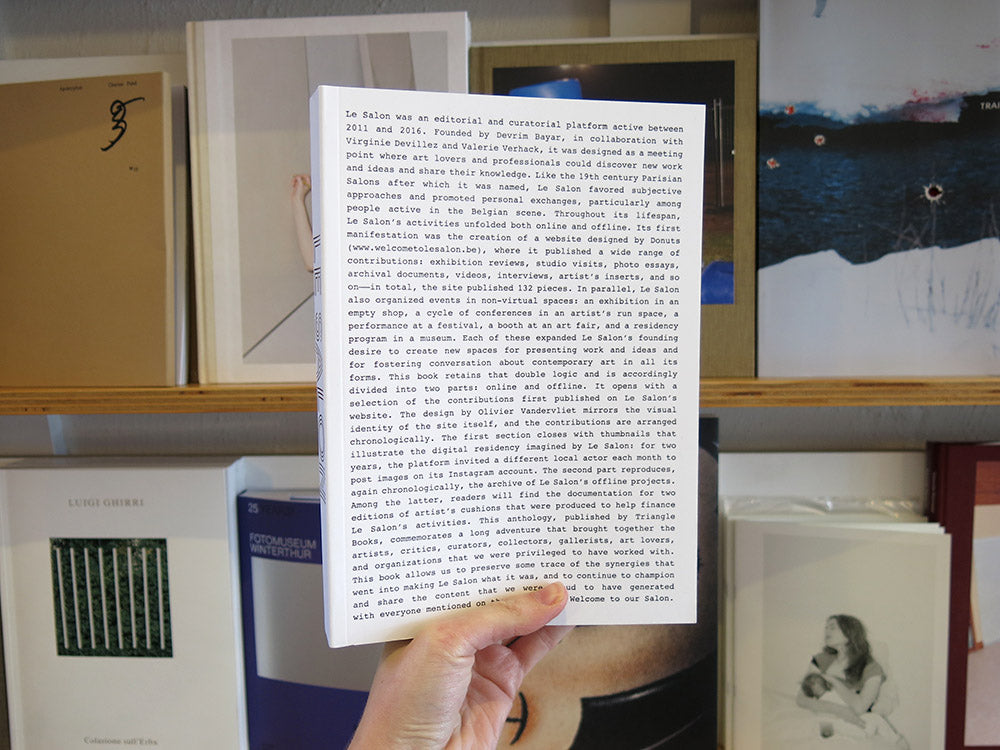 Le Salon was an editorial and curatorial platform active between
2011 and 2016. Founded by Devrim Bayar, in collaboration with
Virginie Devillez and Valerie Verhack, it was designed as a meeting
point where art lovers and professionals could discover new work
and ideas and share their knowledge. Like the 19th century Parisian
Salons after which it was named, Le Salon favored subjective
approaches and promoted personal exchanges, particularly among
people active in the Belgian scene. Throughout its lifespan,
Le Salon's activities unfolded both online and offline. Its first
manifestation was the creation of a website designed by Donuts
(www.welcometolesalon.be), where it published a wide range of
contributions: exhibition reviews, studio visits, photo essays,
archival documents, videos, interviews, artist's inserts, and so
on——in total, the site published 132 pieces. In parallel, Le Salon
also organized events in non-virtual spaces: an exhibition in an
empty shop, a cycle of conferences in an artist's run space, a
performance at a festival, a booth at an art fair, and a residency
program in a museum. Each of these expanded Le Salon's founding
desire to create new spaces for presenting work and ideas and
for fostering conversation about contemporary art in all its
forms. This book retains that double logic and is accordingly
divided into two parts: online and offline. It opens with a
selection of the contributions first published on Le Salon's
website. The design by Olivier Vandervliet mirrors the visual
identity of the site itself, and the contributions are arranged
chronologically. The first section closes with thumbnails that
illustrate the digital residency imagined by Le Salon: for two
years, the platform invited a different local actor each month to
post images on its Instagram account. The second part reproduces,
again chronologically, the archive of Le Salon's offline projects.
Among the latter, readers will find the documentation for two
editions of artist's cushions that were produced to help finance
Le Salon's activities. This anthology, published by Triangle
Books, commemorates a long adventure that brought together the
artists, critics, curators, collectors, gallerists, art lovers,
and organizations that we were privileged to have worked with.
This book allows us to preserve some trace of the synergies that
went into making Le Salon what it was, and to continue to champion
and share the content that we were to have generated
with everyone mentioned on Welcome to our Salon.
LE SALON
LUIGI GHIRRI
Colazione sull'Erba
25
FOTOMUSEUM
WINTERTHUR